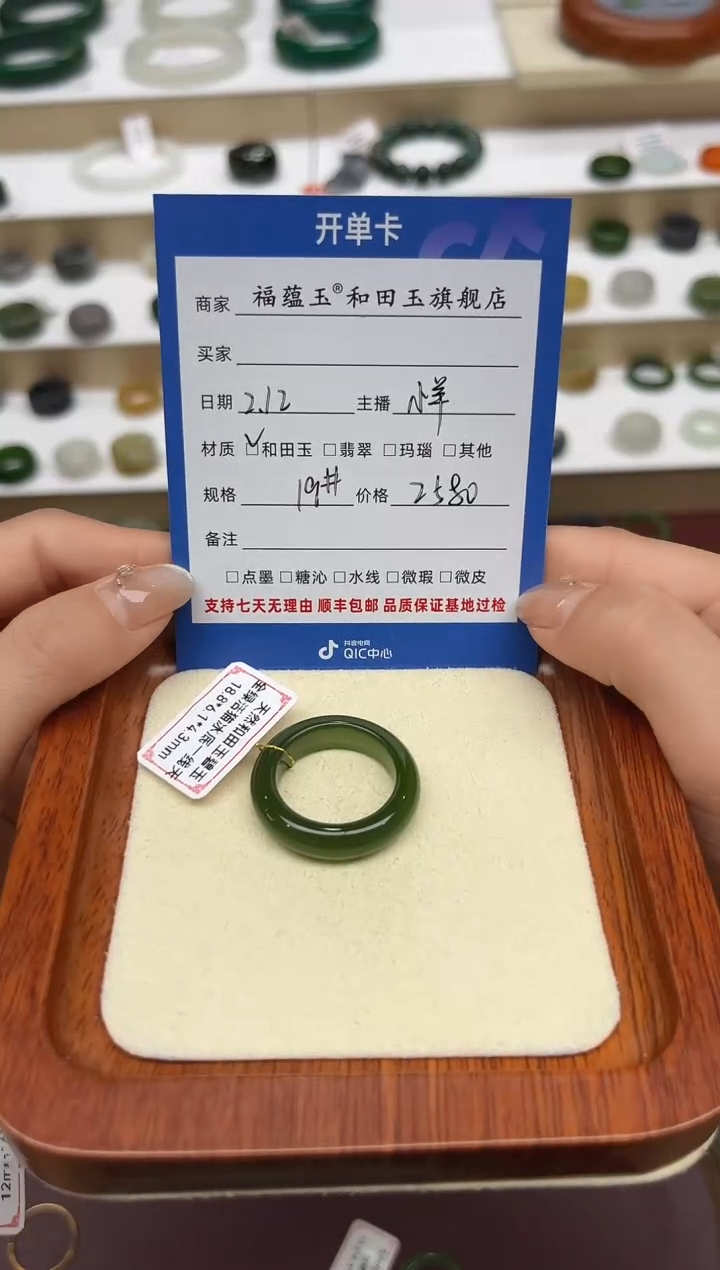 开单卡
商家 福蕴玉®和田玉旗舰店
买家
日期 2.12 主播 小羊
材质 ☑和田玉 □翡翠 □玛瑙 □其他
规格 19# 价格 2580
备注
□点墨 □糖沁 □水线 □微瑕 □微皮
支持七天无理由 顺丰包邮 品质保证基地过检
抖音电商
QIC中心
天然和田玉碧玉
全绿活猫冰底一线天
18.8*6.1*4.3mm
12m